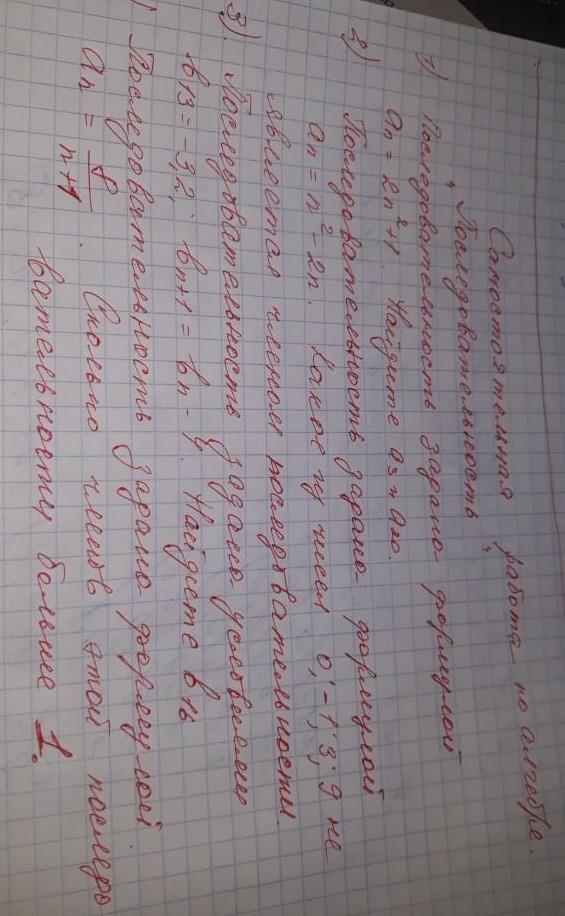 Самостоятельная работа по алгебре.
"Последовательность"
1) Последовательность задана формулой
aₙ = 2n² + 1. Найдите a₃ и a₁₀.
2) Последовательность задана формулой
aₙ = n² - 2n. Какое из чисел 0; -1; 3; 9 не
является членом последовательности.
3). Последовательность задана условиями
b₁₃ = -3,2; bₙ₊₁ = bₙ - 4. Найдите b₁₆
) Последовательность задана формулой
aₙ = 8/(n+1). Сколько членов этой последо
вательности больше 1.